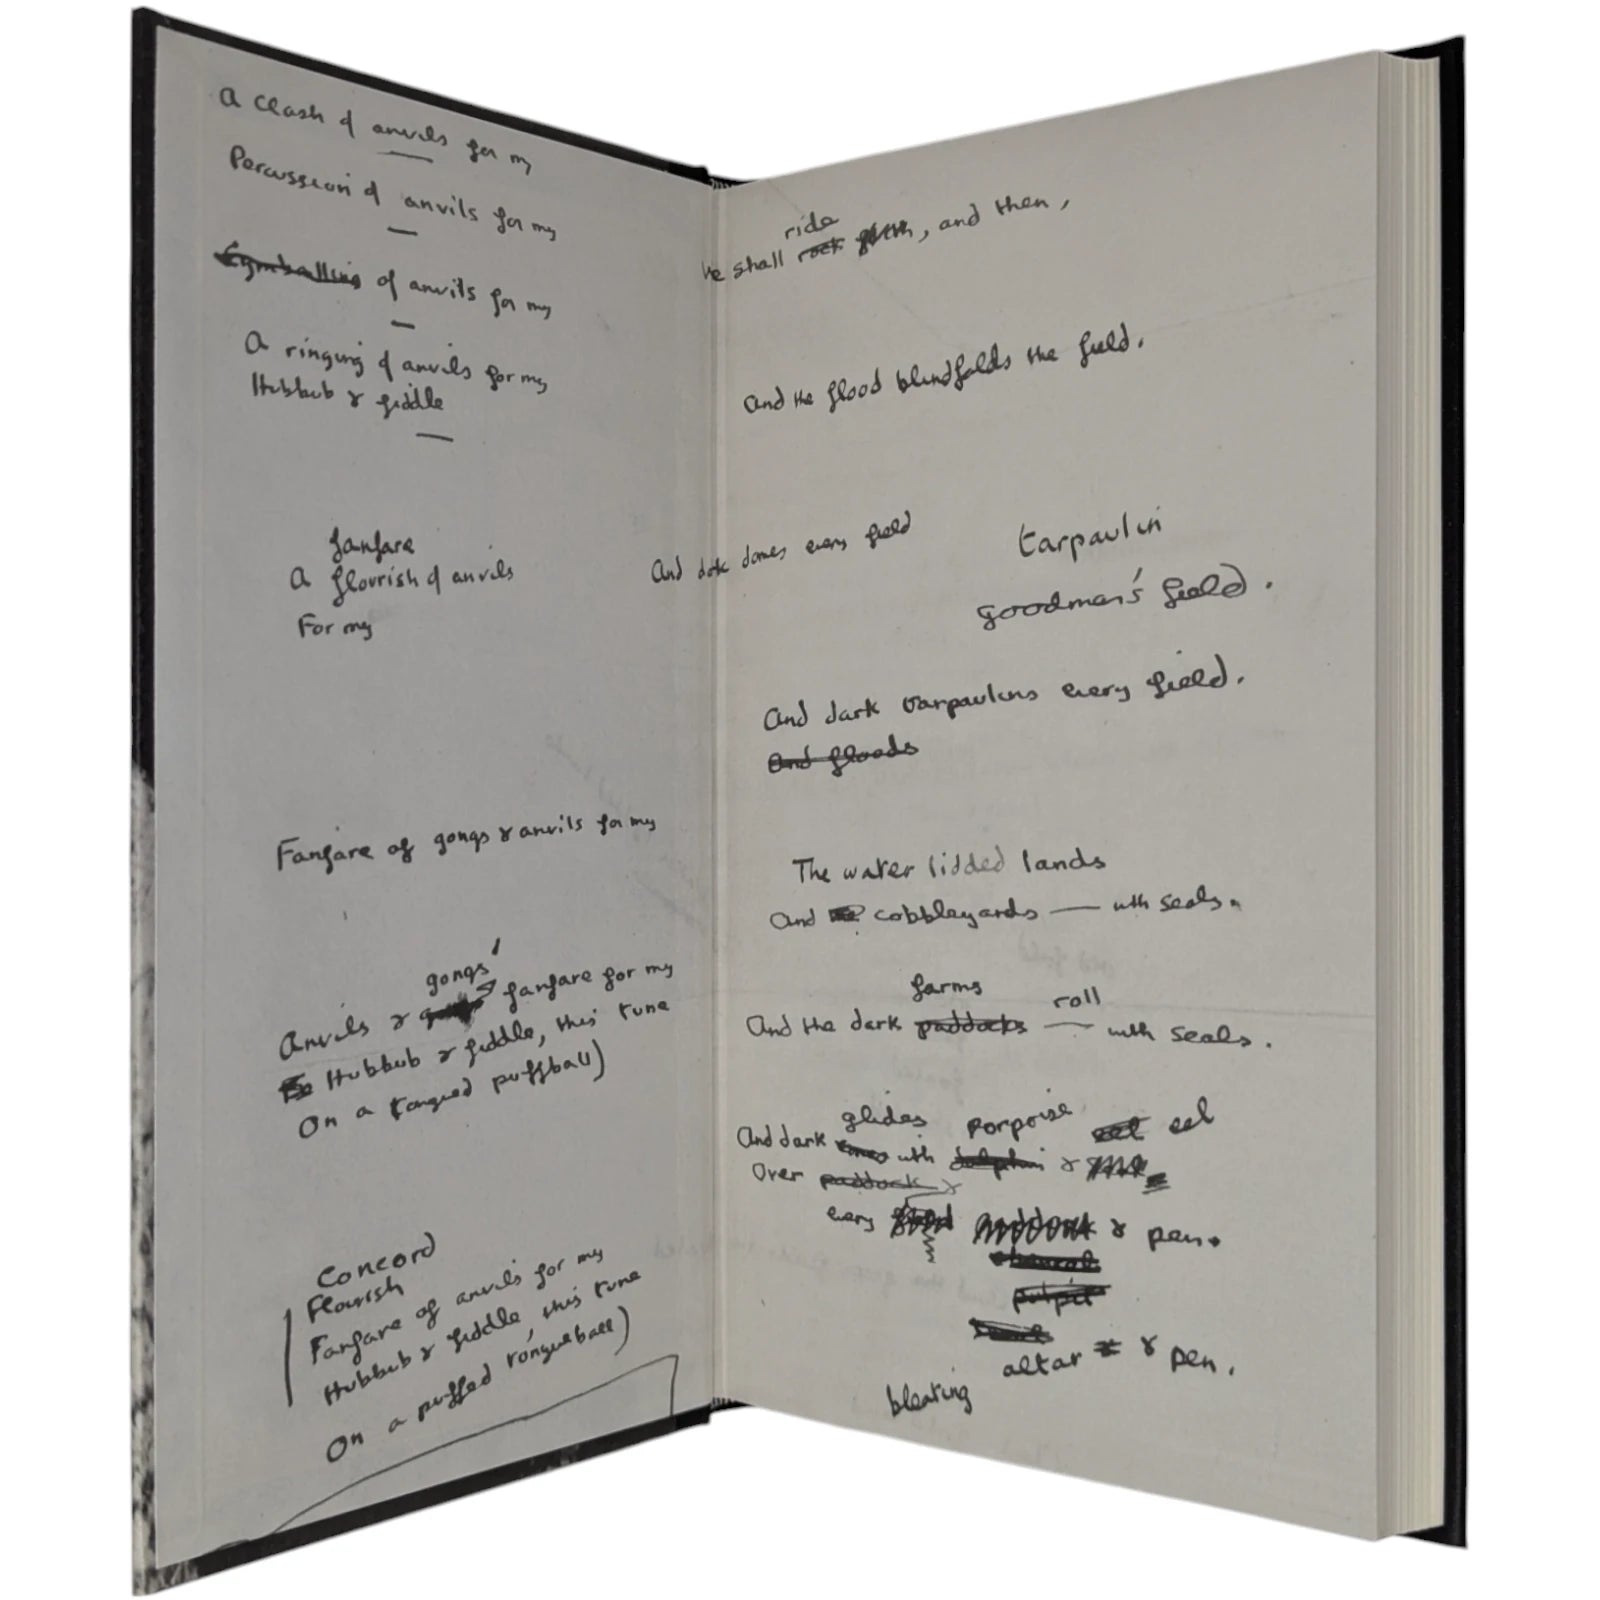 A clash of anvils for my
Percussion of anvils for my
Cymballing of anvils for my
A ringing of anvils for my
Hubbub & fiddle
fanfare
A flourish of anvils
For my
Fanfare of gongs & anvils for my
gongs'
Anvils & fanfare for my
Hubbub & fiddle, this tune
On a tongued puffball)
Concord
Flourish
Fanfare of anvils for my
Hubbub & fiddle, this tune
On a puffed tongueball)
ride
We shall rock, and then,
And the flood blindfolds the field.
And dark domes every field
tarpaulin
goodman's field.
And dark tarpaulins every field.
And floods
The water lidded lands
And cobbleyards — with seals.
farms roll
And the dark paddocks — with seals.
glides porpoise eel eel
And dark with dolphin &
Over paddock &
every & pen.
pulpit
altar & pen.
bleating